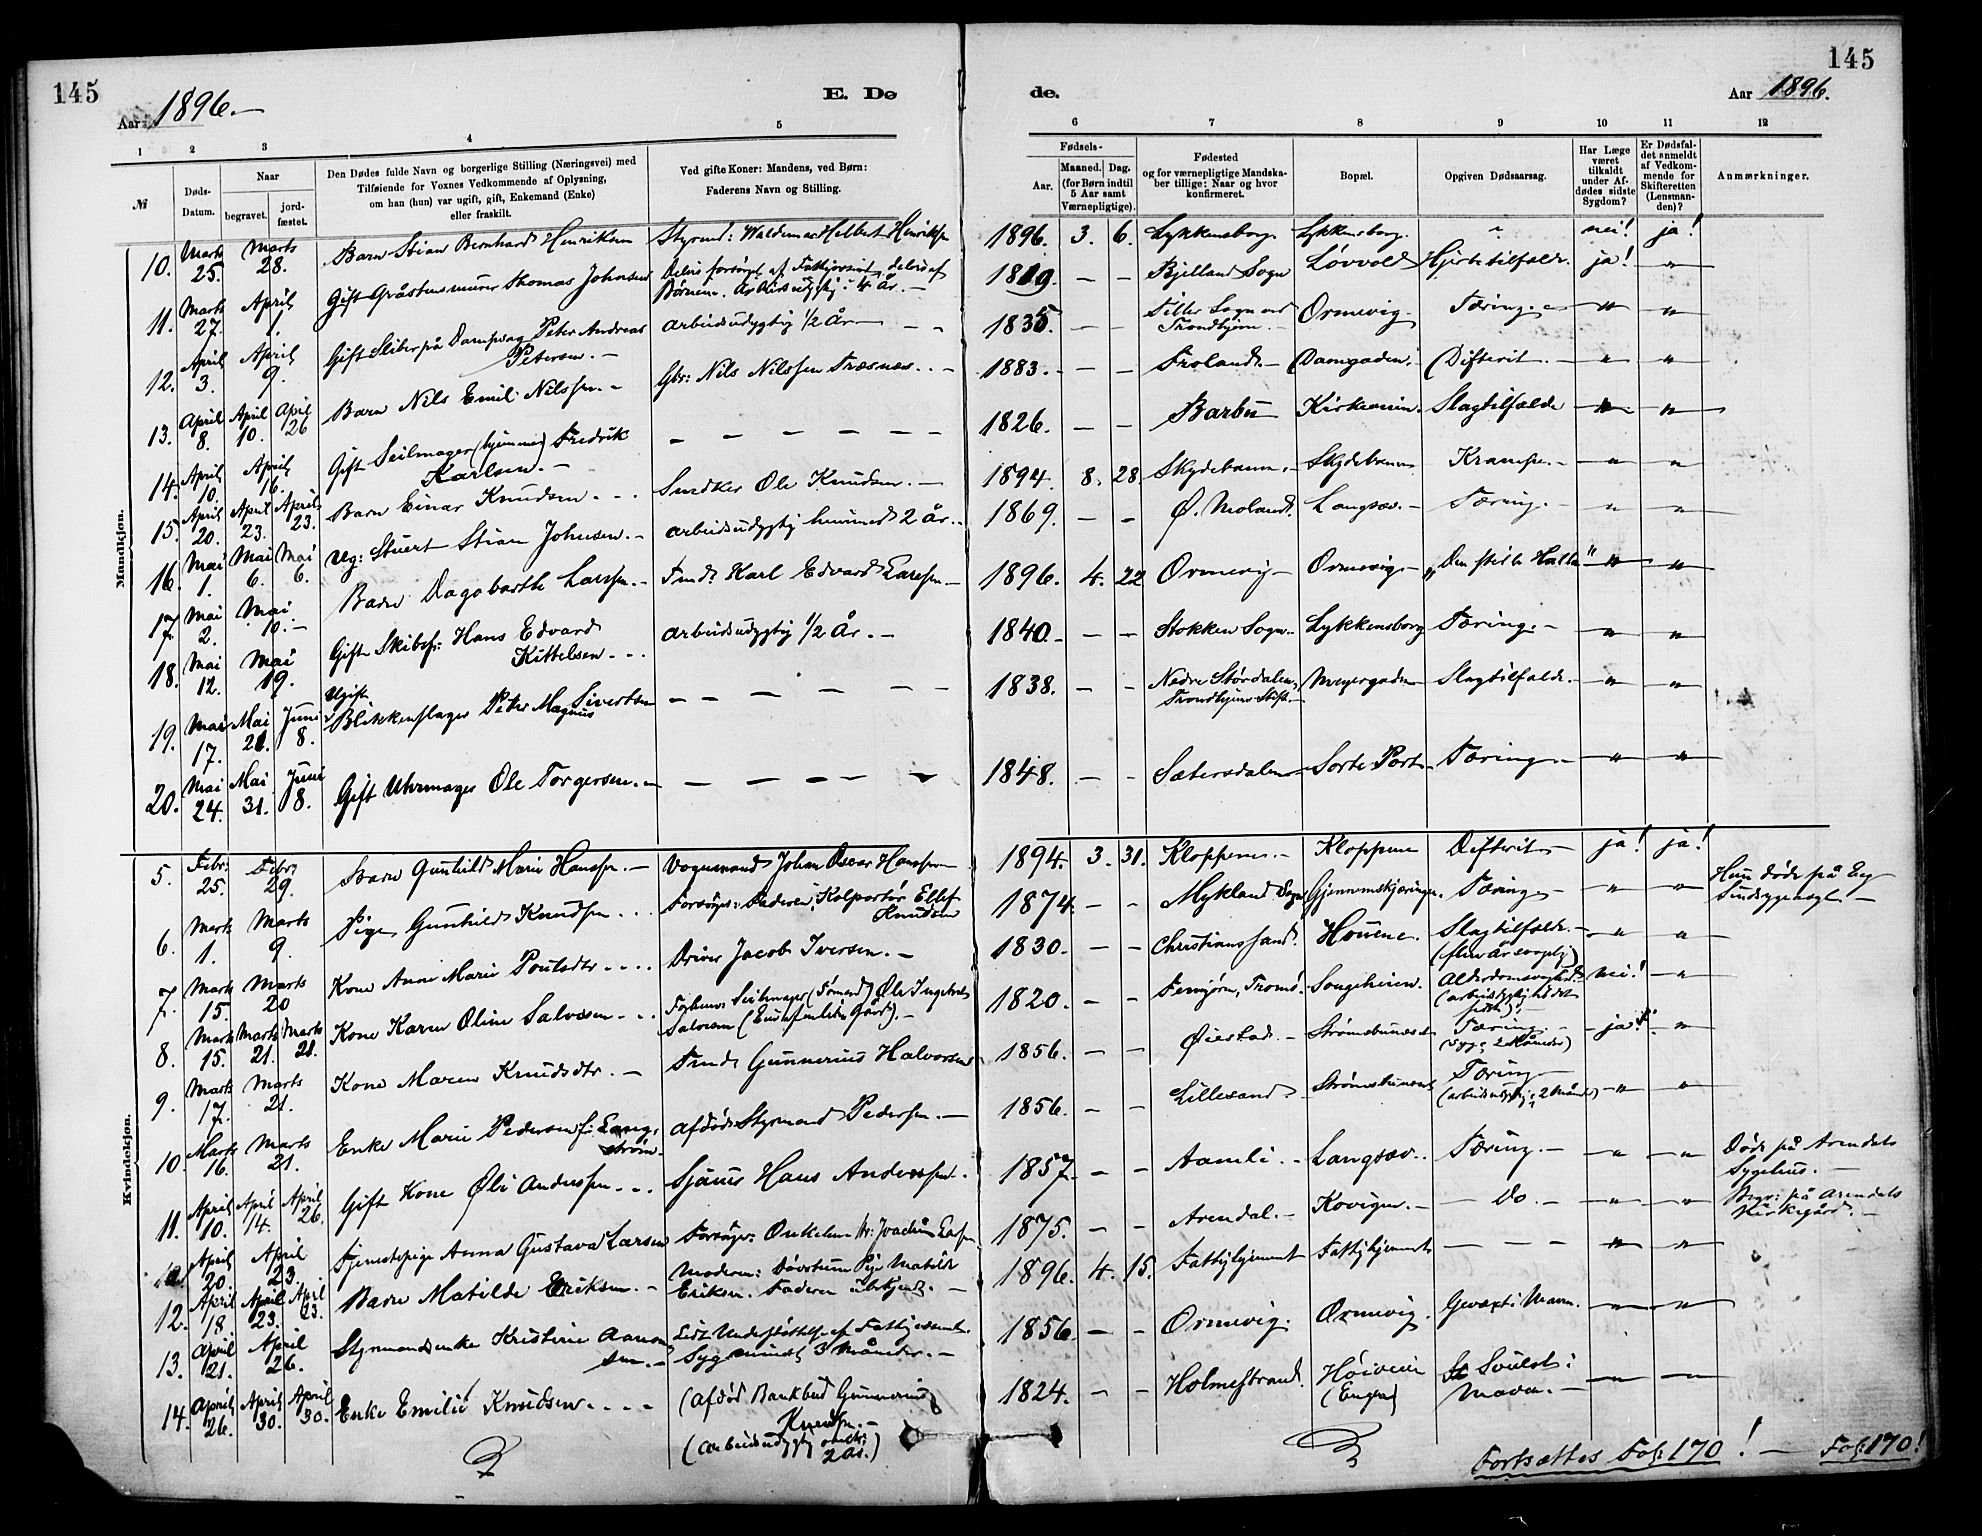 145
145
Aar 1896.
E. Dø
de.
Aar 1896.
1 2 3 4 5 6 7 8 9 10 11 12
№
Døds-Datum.
Naar
begravet.
jord-fæstet.
Den Dødes fulde Navn og borgerlige Stilling (Næringsvei) med
Tilføiende for Voxnes Vedkommende af Oplysning,
om han (hun) var ugift, gift, Enkemand (Enke)
eller fraskilt.
Ved gifte Koner: Mandens, ved Børn:
Faderens Navn og Stilling.
Fødsels-
Aar.
Maaned. Dag.
(for Børn indtil
5 Aar samt
Værnepligtige).
Fødested
og for værnepligtige Mandska-
ber tillige: Naar og hvor
konfirmeret.
Bopæl.
Opgiven Dødsaarsag.
Har Læge
været
tilkaldt
under Af-
dødes sidste
Sygdom?
Er Dødsfal-
det anmeldt
af Vedkom-
mende for
Skifteretten
(Lensman-
den)?
Anmærkninger.
Mandkjøn.
10. Marts 25. Marts 28. Barn Stian Bernhard Henriksen Styrmd: Waldemar Helbert Henriksen 1896. 3. 6. Lykkensborg Lykkensborg " nei! ja!
11. Marts 27. April 1. Gift Gråstensmurer Thomas Johnsen Delvis forsørget af Fattigvæsenet, delvis af
Børnene. Arbeidsudygtig i 4 År. 1819. – – Bjelland Sogn Løvvold Hjertetilfælde. ja! "
12. April 3. April 9. Gift Sliber på Dampsag Peter Andreas
Petersen. – arbeidsudygtig 1/2 År – – 1835. – – Tiller Sogn ved
Trondhjem. – Ormevig. Tæring. – " "
13. April 8. April 10. April 26 Barn Nils Emil Nilssen. – Gbr: Nils Nilssen Træsnæs. – 1883. – – Froland. – Damgaden. Difterit. – " "
14. April 10. April 16. Gift Seilmager (hjemme) Fredrik
Karlsen. – – – – – – 1826. – – Barbu Kirkeveien. Slagtilfælde " "
15. April 20. April 23. April 23. Barn Einar Knudsen. – Snedker Ole Knudsen. – 1894. 8. 28. Skydebanen. – Skydebanen Krampe. – " "
16. Mai 1. Mai 6. Mai 6. Ug: Stuert Stian Johnsen. – arbeidsudygtig henimod 2 År. 1869. – – Ø. Moland. Langsæv. – Tæring. – " "
17. Mai 2. Mai 10. – Barn Dagobarth Larssen. – Tmd: Karl Edvard Larssen – 1896. 4. 22 Ormevig – Ormevig. – „Den stille Hølle" " "
18. Mai 12. Mai 19. Gift Skibsf: Hans Edvard
Kittelsen. – arbeidsudygtig 1/2 År. – 1840. – – Stokken Sogn. Lykkensborg Tæring. – " "
19. Mai 17. Mai 21. Juni 8. Ugift
Blikkenslager Peter Magnus Sivertsen – – – – – 1838. – – Nedre Størdalen,
Trondhjems Stift. – Meyergaden Slagtilfælde. – " "
20. Mai 24. Mai 31. Juni 8. Gift Uhrmager Ole Torgersen. – – – – – – 1848. – – Sætersdalen – Sorte Port. Tæring. – " "
Kvindekjøn.
5. Febr: 25. Febr: 29. Barn Gunhild Marie Hanssen. – Vognmand Johan Oscar Hanssen 1894. 3. 31. Kloppene. – Kloppene Difterit – ja! ja!
6. Marts 1. Marts 9. Pige Gunhild Knudsen. – Forsørger: Faderen, Kolportør Ellef
Knudsen 1874. – – Mykland Sogn Gjennemskjæringen. Tæring. – " " Hun døde på Eg
Sindssygeasyl. –
7. Marts 15. Marts 20 Kone Anne Marie Poulsdtr. – Driver Jacob Iversen. – 1830. – – Christianssand. Houene. Slagtilfælde. –
(flere År svagelig) " "
8. Marts 15. Marts 21. Marts 21. Kone Karen Oline Salvesen. – Forhenv: Seilmager (Tømmerd) Ole Ingebret
Salvesen (Eier af en liden Gård). – 1820. – – Femjøren, Tromø. Songeheien. Alderdomssvaghed
(arbeidsdygtig indtil
sidst). – nei! "
9. Marts 17. Marts 21. Kone Maren Knudsdtr. – Tmd: Gunnerius Halvorsen 1856. – – Øiestad. – Strømsbunæset Tæring –
(syg i 2 Måneder) – ja! "
10. Marts 16. Marts 21. Enke Marie Pedersen f: Lang-
strøm. afdøde Styrmand Pedersen. – 1856. – – Lillesand Strømsbunæset Tæring –
(arbeidsudygtig i 2 Måneder) " "
11. April 10. April 14. April 26. Gift Kone Øli Anderssen. – Sjømd Hans Anderssen. 1857. – – Aamli. – Langsæv. Tæring. – " " Døde på Arendals
Sygehus. –
April 20. April 23. Tjenestepige Anna Gustava Larsen Forsørger: Onkelen Hr: Joachim Larsen. 1875. – – Arendal. – Kovigen. – – Do. – " " Begr: på Arendals
Kirkegård. –
12. April 18 April 23. April 23. Barn Matilde Eriksen. – Moderen: Døvstum Pige Matilde
Eriksen. Faderen ubekjendt. – 1896. 4. 15. Fattighjemmet Fattighjemmet – – – " "
13. April 21. April 26. Styrmandsenke Kristine Aanon-
sen. – Lidt Understøttelse af Fattigvæsenet.
Syg mindst 3 Måneder. – 1856 – – Ormevig. Ormevig. Gevæxt i Maven. " "
14. April 26. April 30. April 30. Enke Emilie Knudsen. – (Afdød Bankbud Gunnerius
Knudsen. –
(arbeidsudygtig omtr:
2 År.) 1824. – – Holmestrand. Høiveien
(Engen) Svulst i
Maven. – " "
Fortsættes Fol: 170! – Fol: 170!